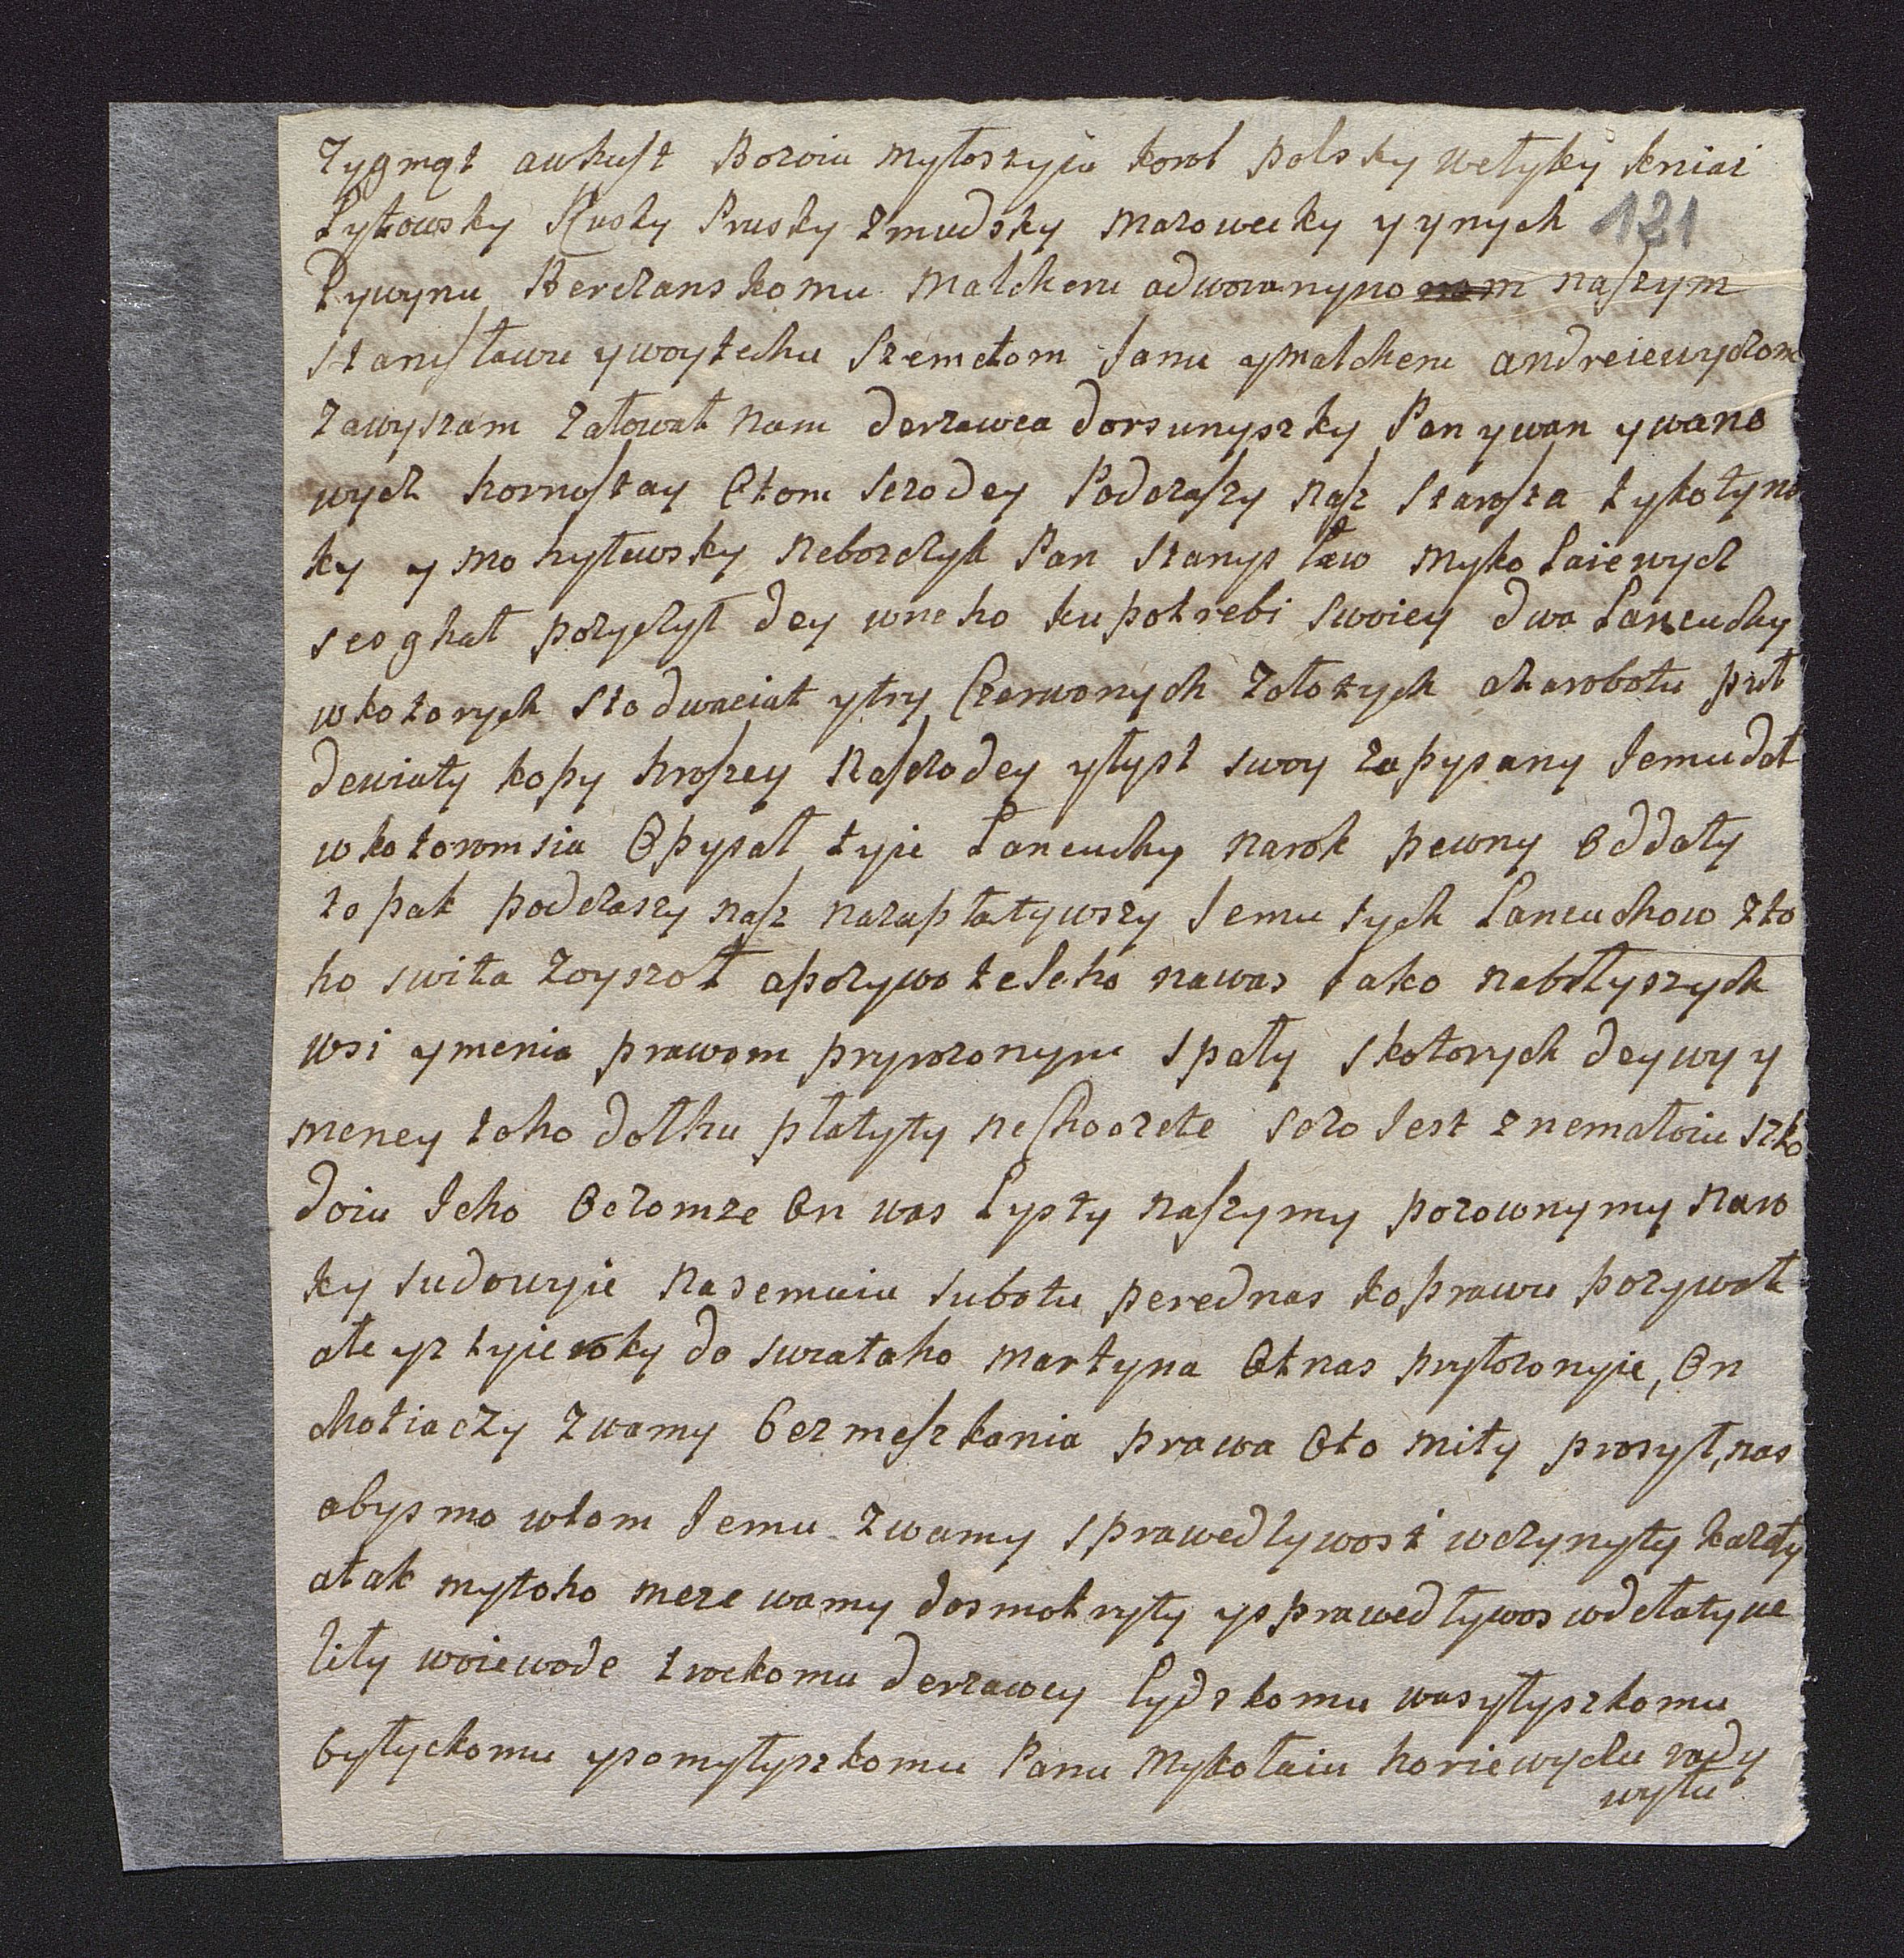 Zygmąt aukust Bozoiu myłoszyiu korol polsky wełyky kniaz
Łytowsky Rusky Prusky Zmudsky Mazowecky y ynych 121
Tywynu Berczanskomu Malcheru a dworanyno nam naszym
Stanisławu y woytechu Szemetom Janu y Malcheru andreiewyczom
Zawyszam Załował nam derzawca dorsunyszky Pan ywan ywano
wych hornostay O tom sczo dey Podczaszy nasz Starosta tykotyns
ky y mohylewsky neboszczyk Pan Stanysław Mykołaiewycz
scoghał pozyczył dey w neho ku potrebi swoiey dwa Łancuchy
w kotorych sto dwaciat y try Czerwonych Zołotych ot a robotu puł
dewiaty kopy hroszey Naszczo dey y łyst swoy zapysany Jemu dał
w kotorom sia Opysał tyie Łancuchy na rok pewny Oddaty
to pak podczaszy nasz nezapłatywszy Jemu tych Łancuchow z to
ho switá Zoyszoł a pozywatel eho na was Jako na błyszych
wsi ymenia prawom pryrozonym spały s kotorych dey wy y
meney toho dołhu płatyty ne choczete sczo Jest z nemałoiu szko
doiu Jeho O czomze On was Łysty naszymy pozownymy na ro
ky sudowyie na semuiu subotu pered nas ko prawu pozywał
ale yz tyie roky do swiataho Martyna Ot nas pryłozonyie, On
chotiaczy z wamy bez meszkania prawa Oto mity prosył, nas
abysmo w tom Jemu z wamy sprawedlywost wczynyty kazały
a tak my toho meze wamy dosmotryty y sprawedływos wdełaty we
liły woiewode trockomu derzawcy Łydskomu wasyłyszkomu
byłyckomu y somyłyszkomu Panu Mykołaiu horiewyczu rady
wyłu